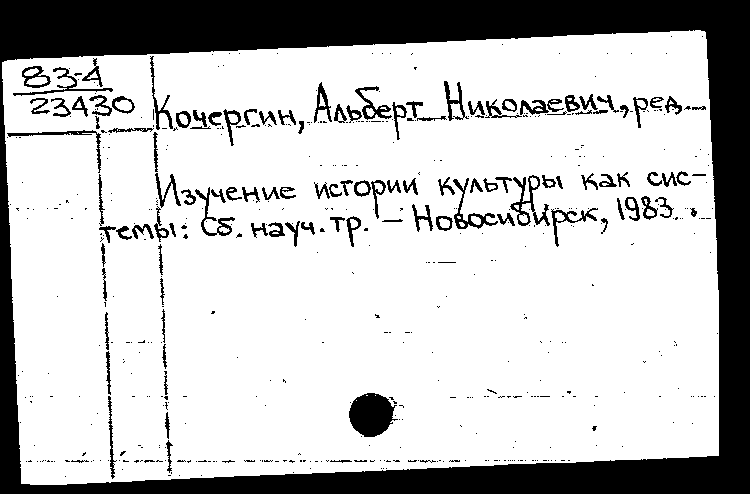 83-4
23430
Кочергин, Альберт Николаевич, ред.
Изучение истории культуры как сис-
темы: Сб. науч. тр. – Новосибирск, 1983.